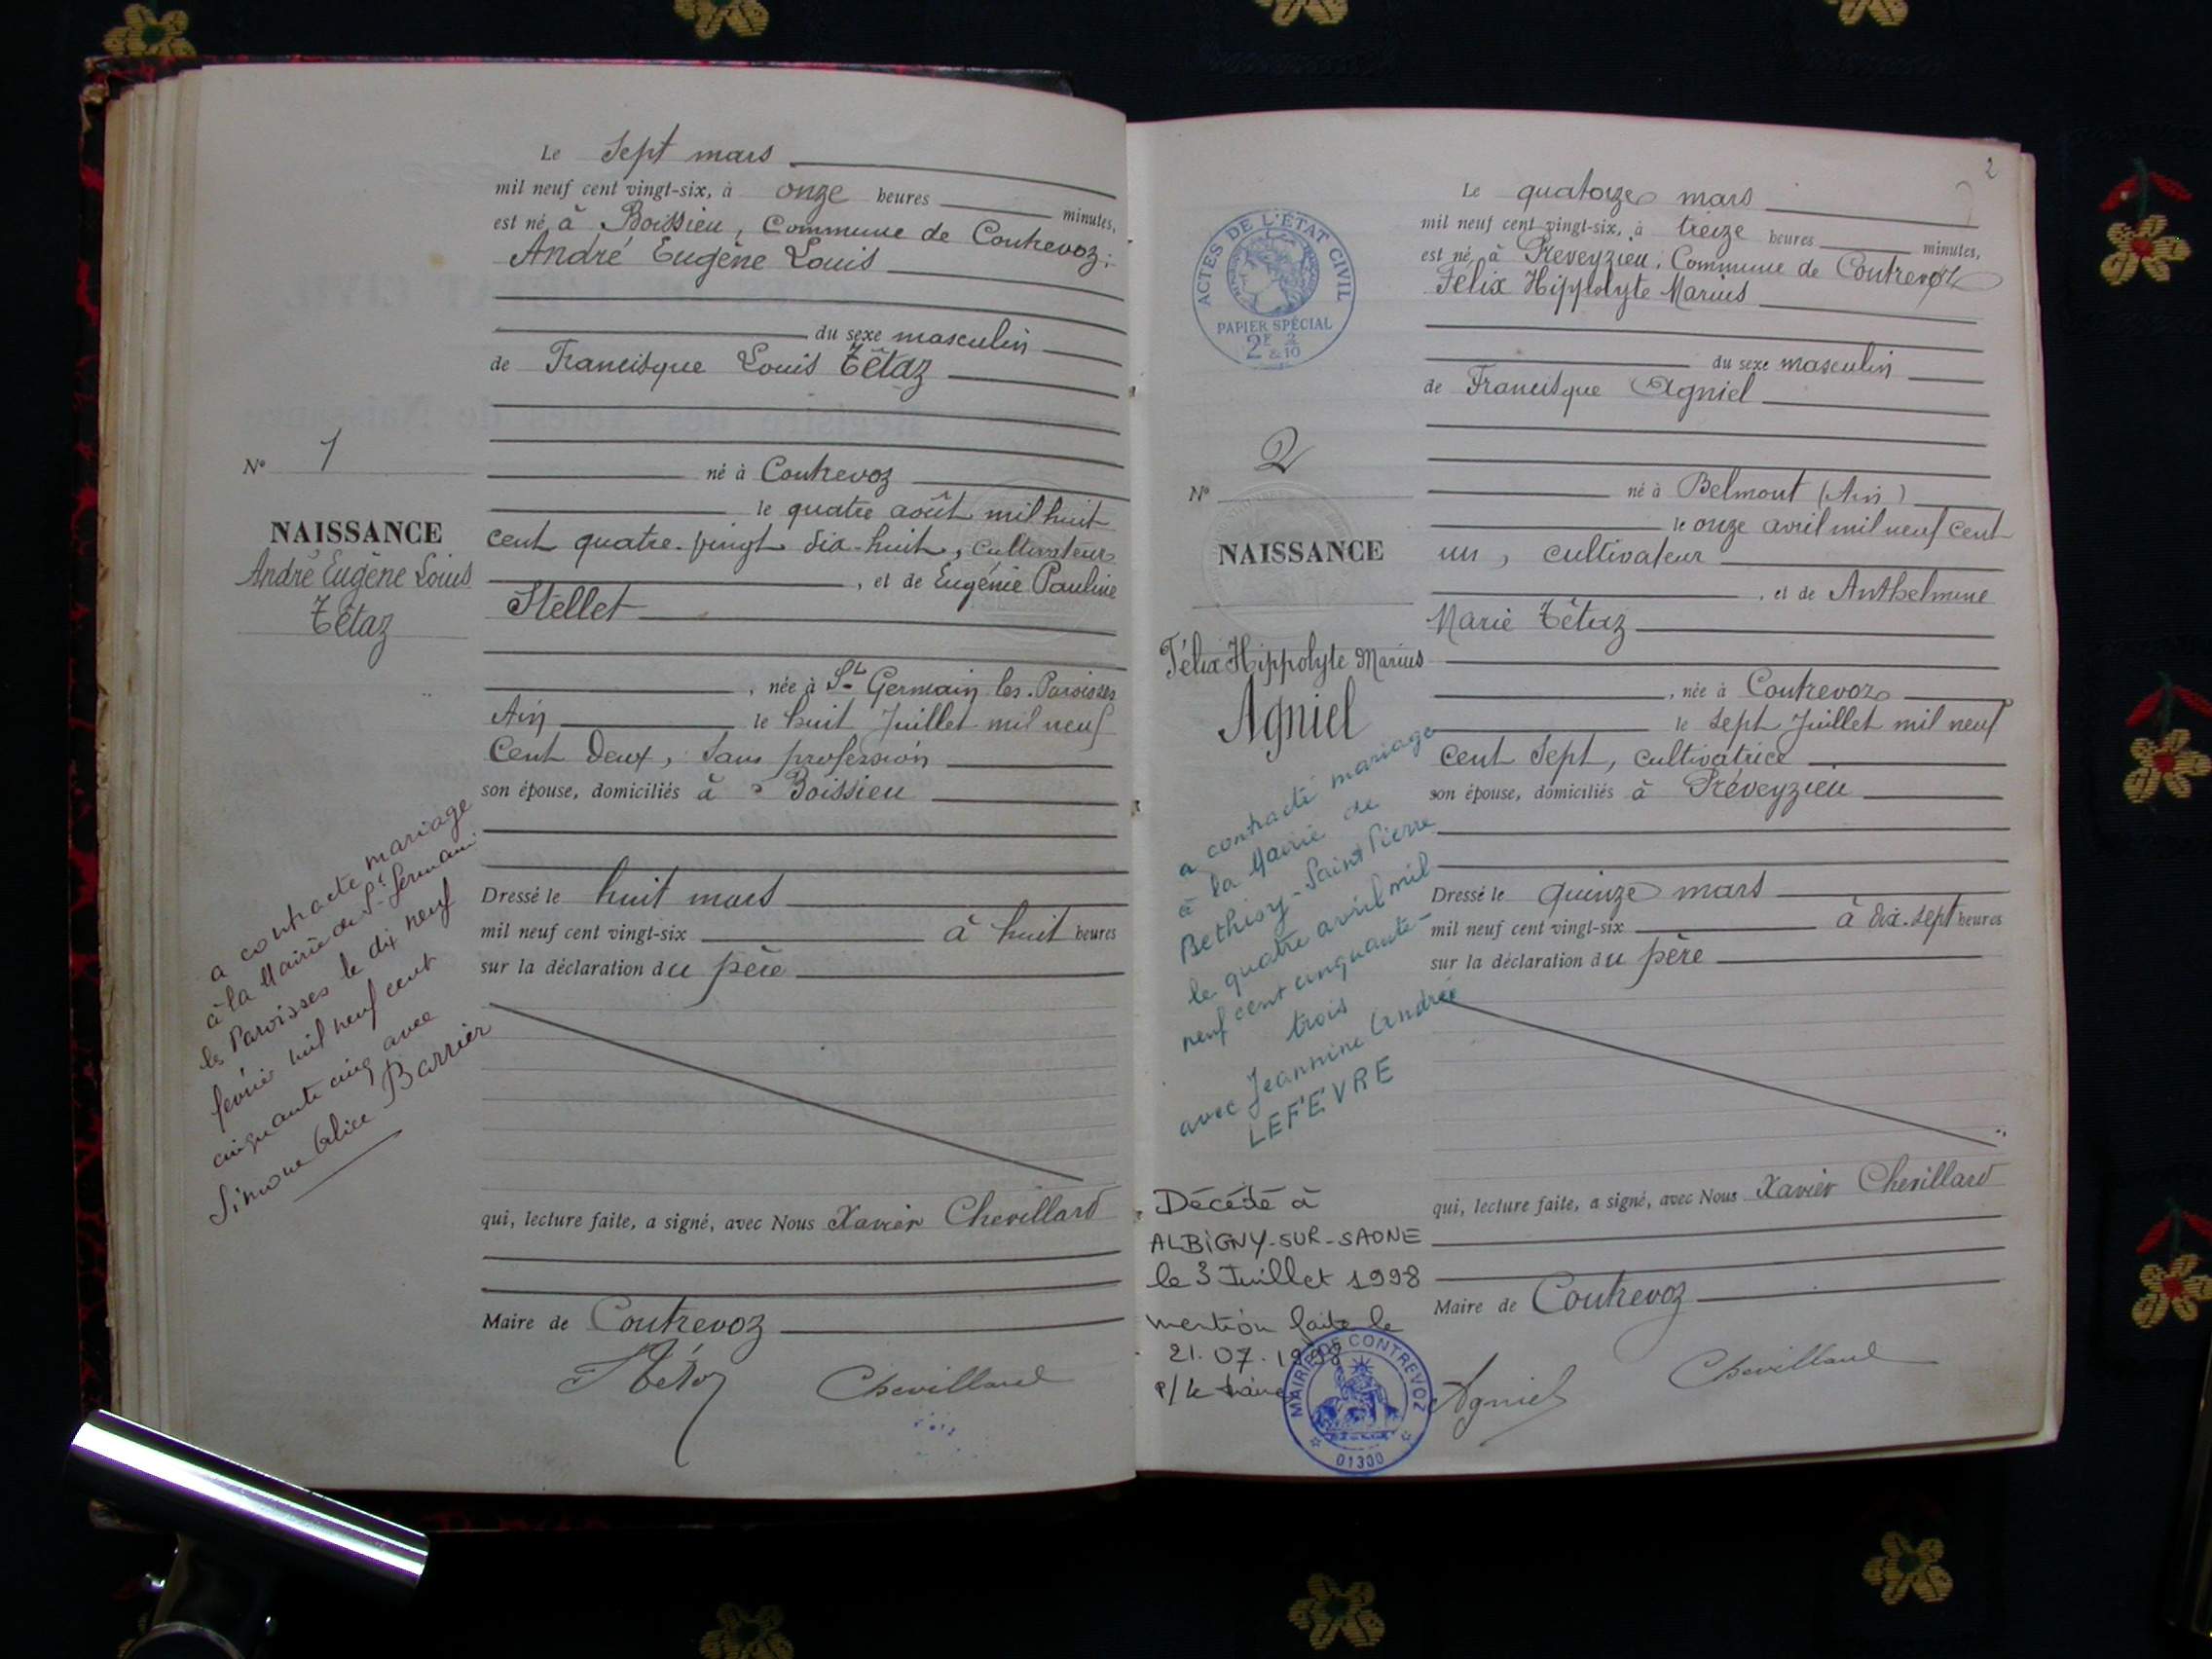 Le sept mars
mil neuf cent vingt-six, à onze heures minutes,
est né à Boissieu, Commune de Contrevoz :
André Eugène Louis
du sexe masculin
de Francisque Louis Têtaz
né à Contrevoz
le quatre août mil huit
cent quatre-vingt dix-huit, cultivateur
, et de Eugénie Pauline
Stellet
, née à St Germain les Paroisses
Ain le huit Juillet mil neuf
cent deux, sans profession
son épouse, domiciliés à Boissieu
Dressé le huit mars
mil neuf cent vingt-six à huit heures
sur la déclaration du père
qui, lecture faite, a signé, avec Nous Xavier Chevillard
Maire de Contrevoz
Têtaz Chevillard
N° 1
NAISSANCE
André Eugène Louis
Têtaz
a contracté mariage
à la Mairie de St Germain
les Paroisses le dix neuf
février mil neuf cent
cinquante cinq avec
Simone Alice Barrier
2
Le quatorze mars
mil neuf cent vingt-six, à treize heures minutes,
est né, à Préveyzieu, Commune de Contrevoz
Félix Hippolyte Marius
du sexe masculin
de Francisque Agniel
né à Belmont (Ain)
le onze avril mil neuf cent
un, cultivateur
, et de Anthelmine
Marie Têtaz
, née à Contrevoz
le sept Juillet mil neuf
cent sept, cultivatrice
son épouse, domiciliés à Préveyzieu
Dressé le quinze mars
mil neuf cent vingt-six à dix-sept heures
sur la déclaration du père
qui, lecture faite, a signé, avec Nous Xavier Chevillard
Maire de Contrevoz
Agniel Chevillard
ACTES DE L'ÉTAT CIVIL
PAPIER SPÉCIAL
2F 2/10
N° 2
NAISSANCE
Félix Hippolyte Marius
Agniel
a contracté mariage
à la Mairie de
Bethisy-Saint Pierre
le quatre avril mil
neuf cent cinquante-
trois
avec Jeannine Andrée
LEFÉVRE
Décédé à
ALBIGNY-SUR-SAONE
le 3 Juillet 1998
mention faite le
21.07.1998
P/ le Maire
MAIRIE DE CONTREVOZ
01300